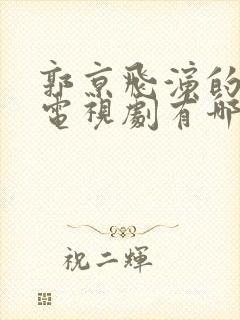 郭京飛演的
電視劇有哪
祝二輝